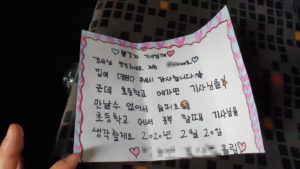 ♡ 기사님께 ♡
기사님 안녕하세요. 저는
집에 데려다 주셔서 감사합니다☆
근데 초등학교 에가면 기사님을
만날수 없어서 슬퍼요
초등학교 에서 공부 할때 기사님을
생각할게요. 2020년 2월 20일
올림♡